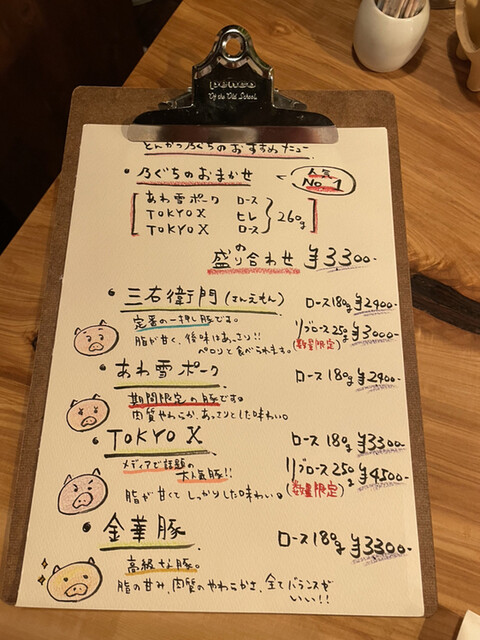 とんかつ乃ぐちのおすすめメニュー
・乃ぐちのおまかせ
人気
No.1
あわ雪ポーク ロース
TOKYO X ヒレ
TOKYO X ロース
260g
の盛り合わせ ¥3300-
・三右衛門(さんえもん) ロース180g ¥2900-
定番の一押し豚です。
リブロース250g ¥3000-
脂が甘く、後味はあっさり!!
(数量限定)
ペロリと食べられます。
・あわ雪ポーク ロース 180g ¥2900-
期間限定の豚です。
肉質やわらか、あっさりとした味わい。
・TOKYO X ロース 180g ¥3300-
メディアで話題の
大人気豚!!
リブロース250g ¥4500-
脂が甘くてしっかりした味わい。
(数量限定)
・金華豚 ロース180g ¥3300-
高級な豚。
脂の甘み、肉質のやわらかさ、全てバランスが
いい!!